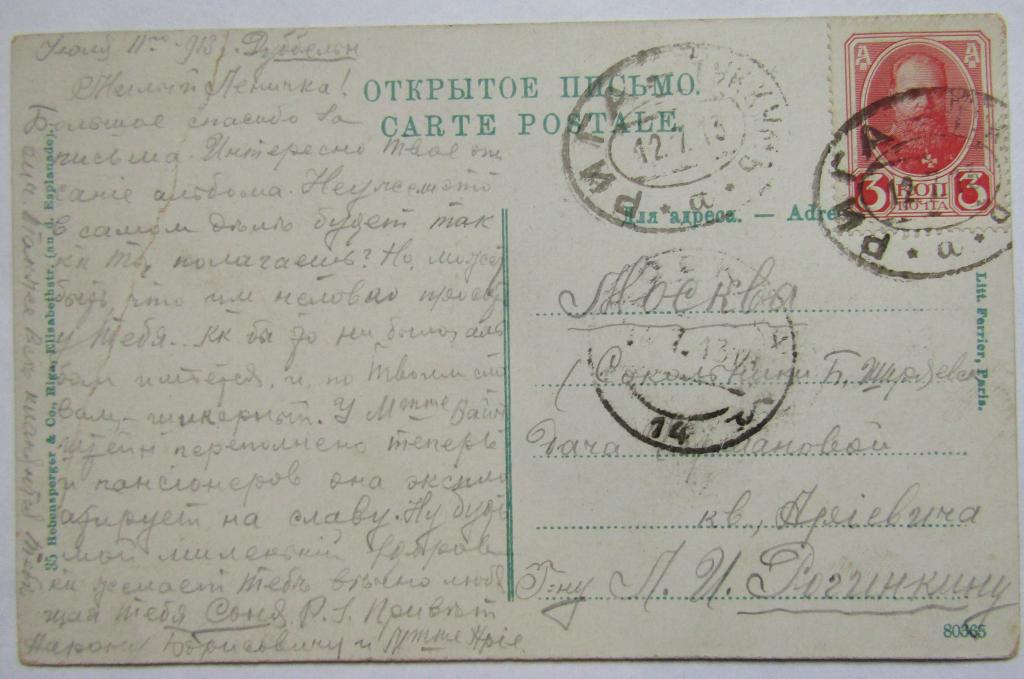 Июля 11го 913 г. Дуббельн
Милый Леничка!
Большое спасибо за
письма. Интересно твое опи
саніе альбома. Неужели
в самом дѣлѣ будет так
кк ты полагаешь? Но, может
быть, что им неловко
у тебя.. Кк бы то ни было, аль
бом имѣется, и, по твоим сло
вам, шикарный. У Мтте Вайн
штейн переполнено теперь
и пансіонеров она эксплоа
тирует на славу. Ну будь
мой миленькій здоров
кк желает тебѣ вѣчно любя
щая тебя Соня P.S. Привѣт
Борисовичу и
ОТКРЫТОЕ ПИСЬМО.
CARTE POSTALE.
Для адреса. — Adres
РИГА
12.7.13
а
3 КОП 3
ПОЧТА
РИГА
а
Москва
(Сокольники Б. Ширяевск
Дача
кв. Аріевича
Г-ну Л. И. Рогинкину
14
35 Rebensperger & Co., Riga, Elisabethstr. (an d. Esplanade).
Litt. Ferrier, Paris.
80365